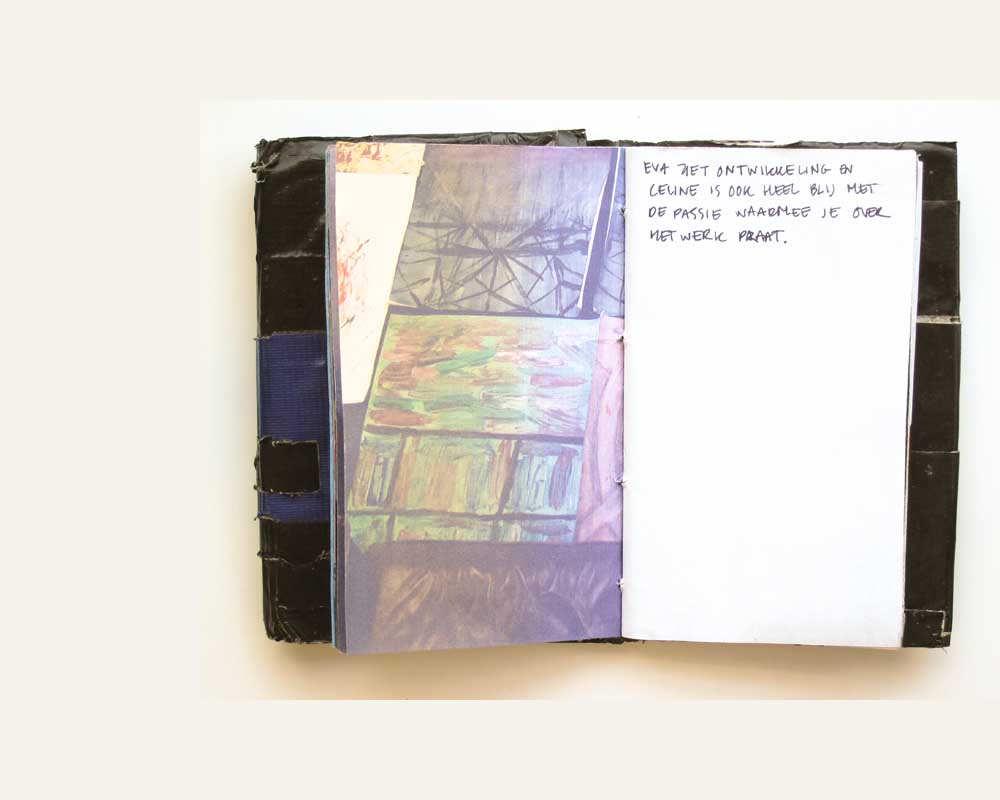 EVA ZIET ONTWIKKELING EN
CELINE IS OOK HEEL BLIJ MET
DE PASSIE WAARMEE JE OVER
HET WERK PRAAT.